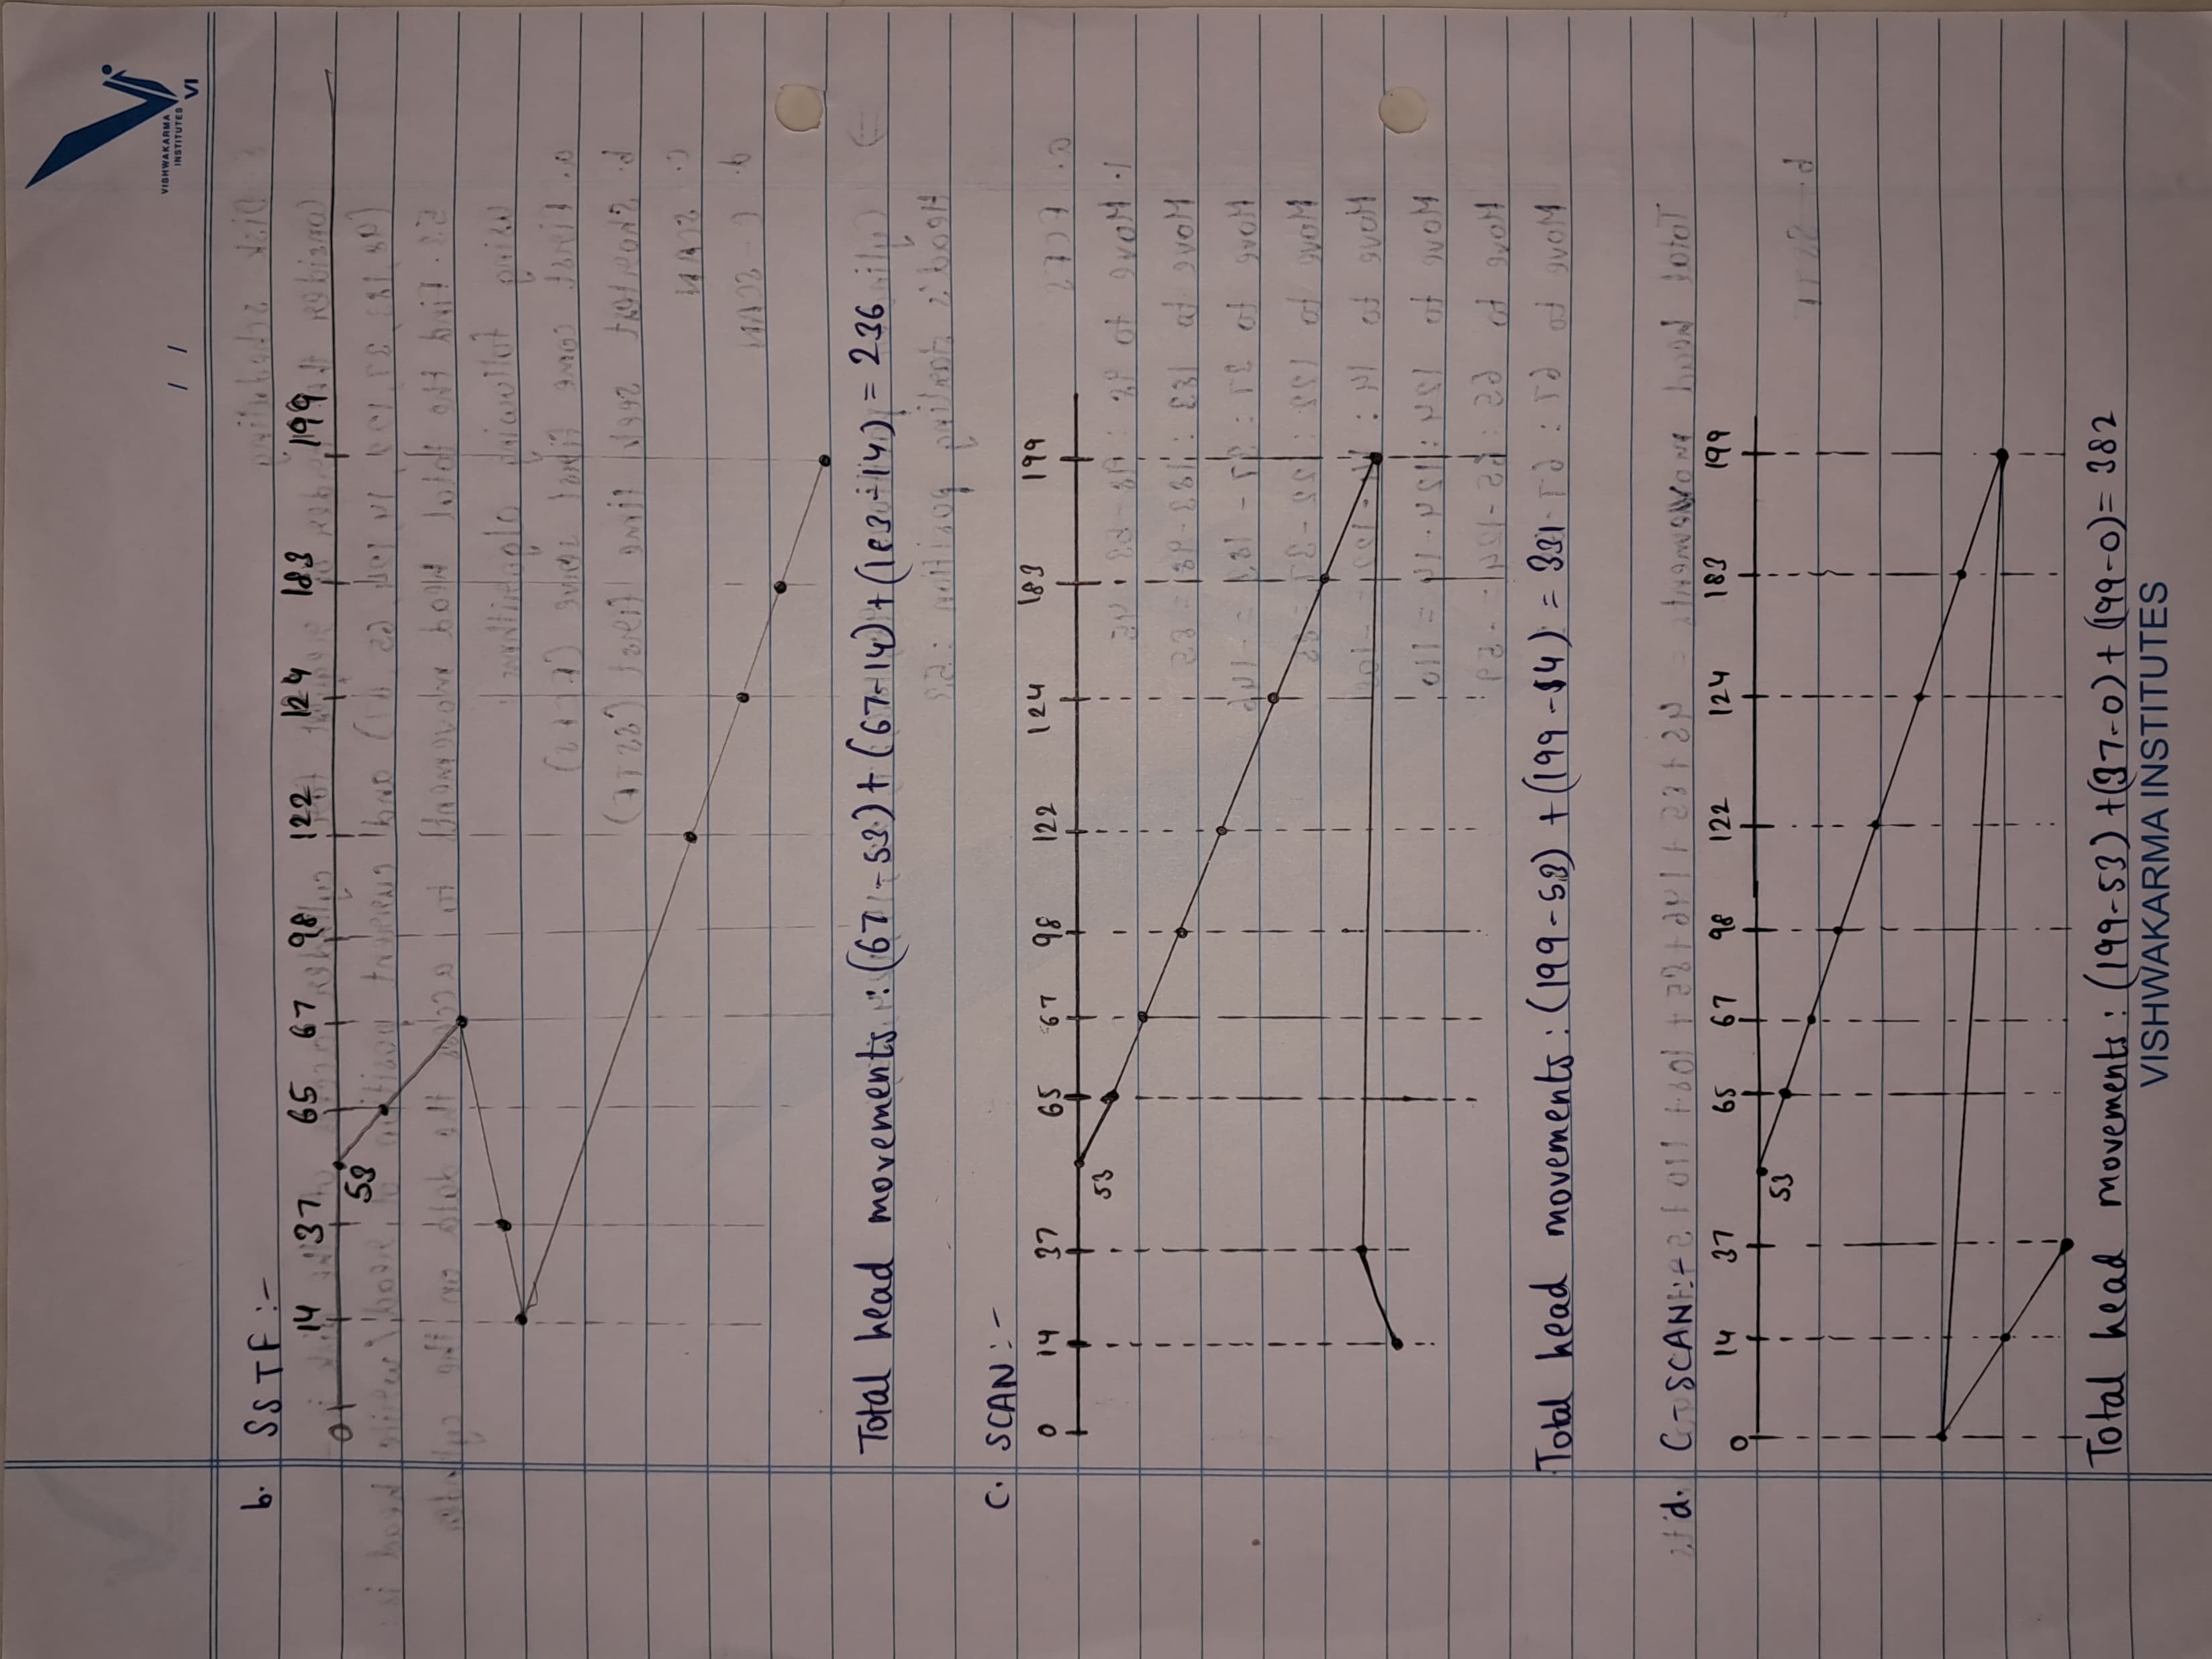 / /
VISHWAKARMA
INSTITUTES
VI
b. SSTF :-
0 14 37 53 65 67 98 122 124 183 199
Total head movements : (67-53) + (67-14) + (183-14) = 236
c. SCAN :-
0 14 37 53 65 67 98 122 124 183 199
Total head movements : (199-53) + (199-14) = 331
d. C-SCAN :-
0 14 37 53 65 67 98 122 124 183 199
Total head movements : (199-53) + (37-0) + (199-0) = 382
VISHWAKARMA INSTITUTES